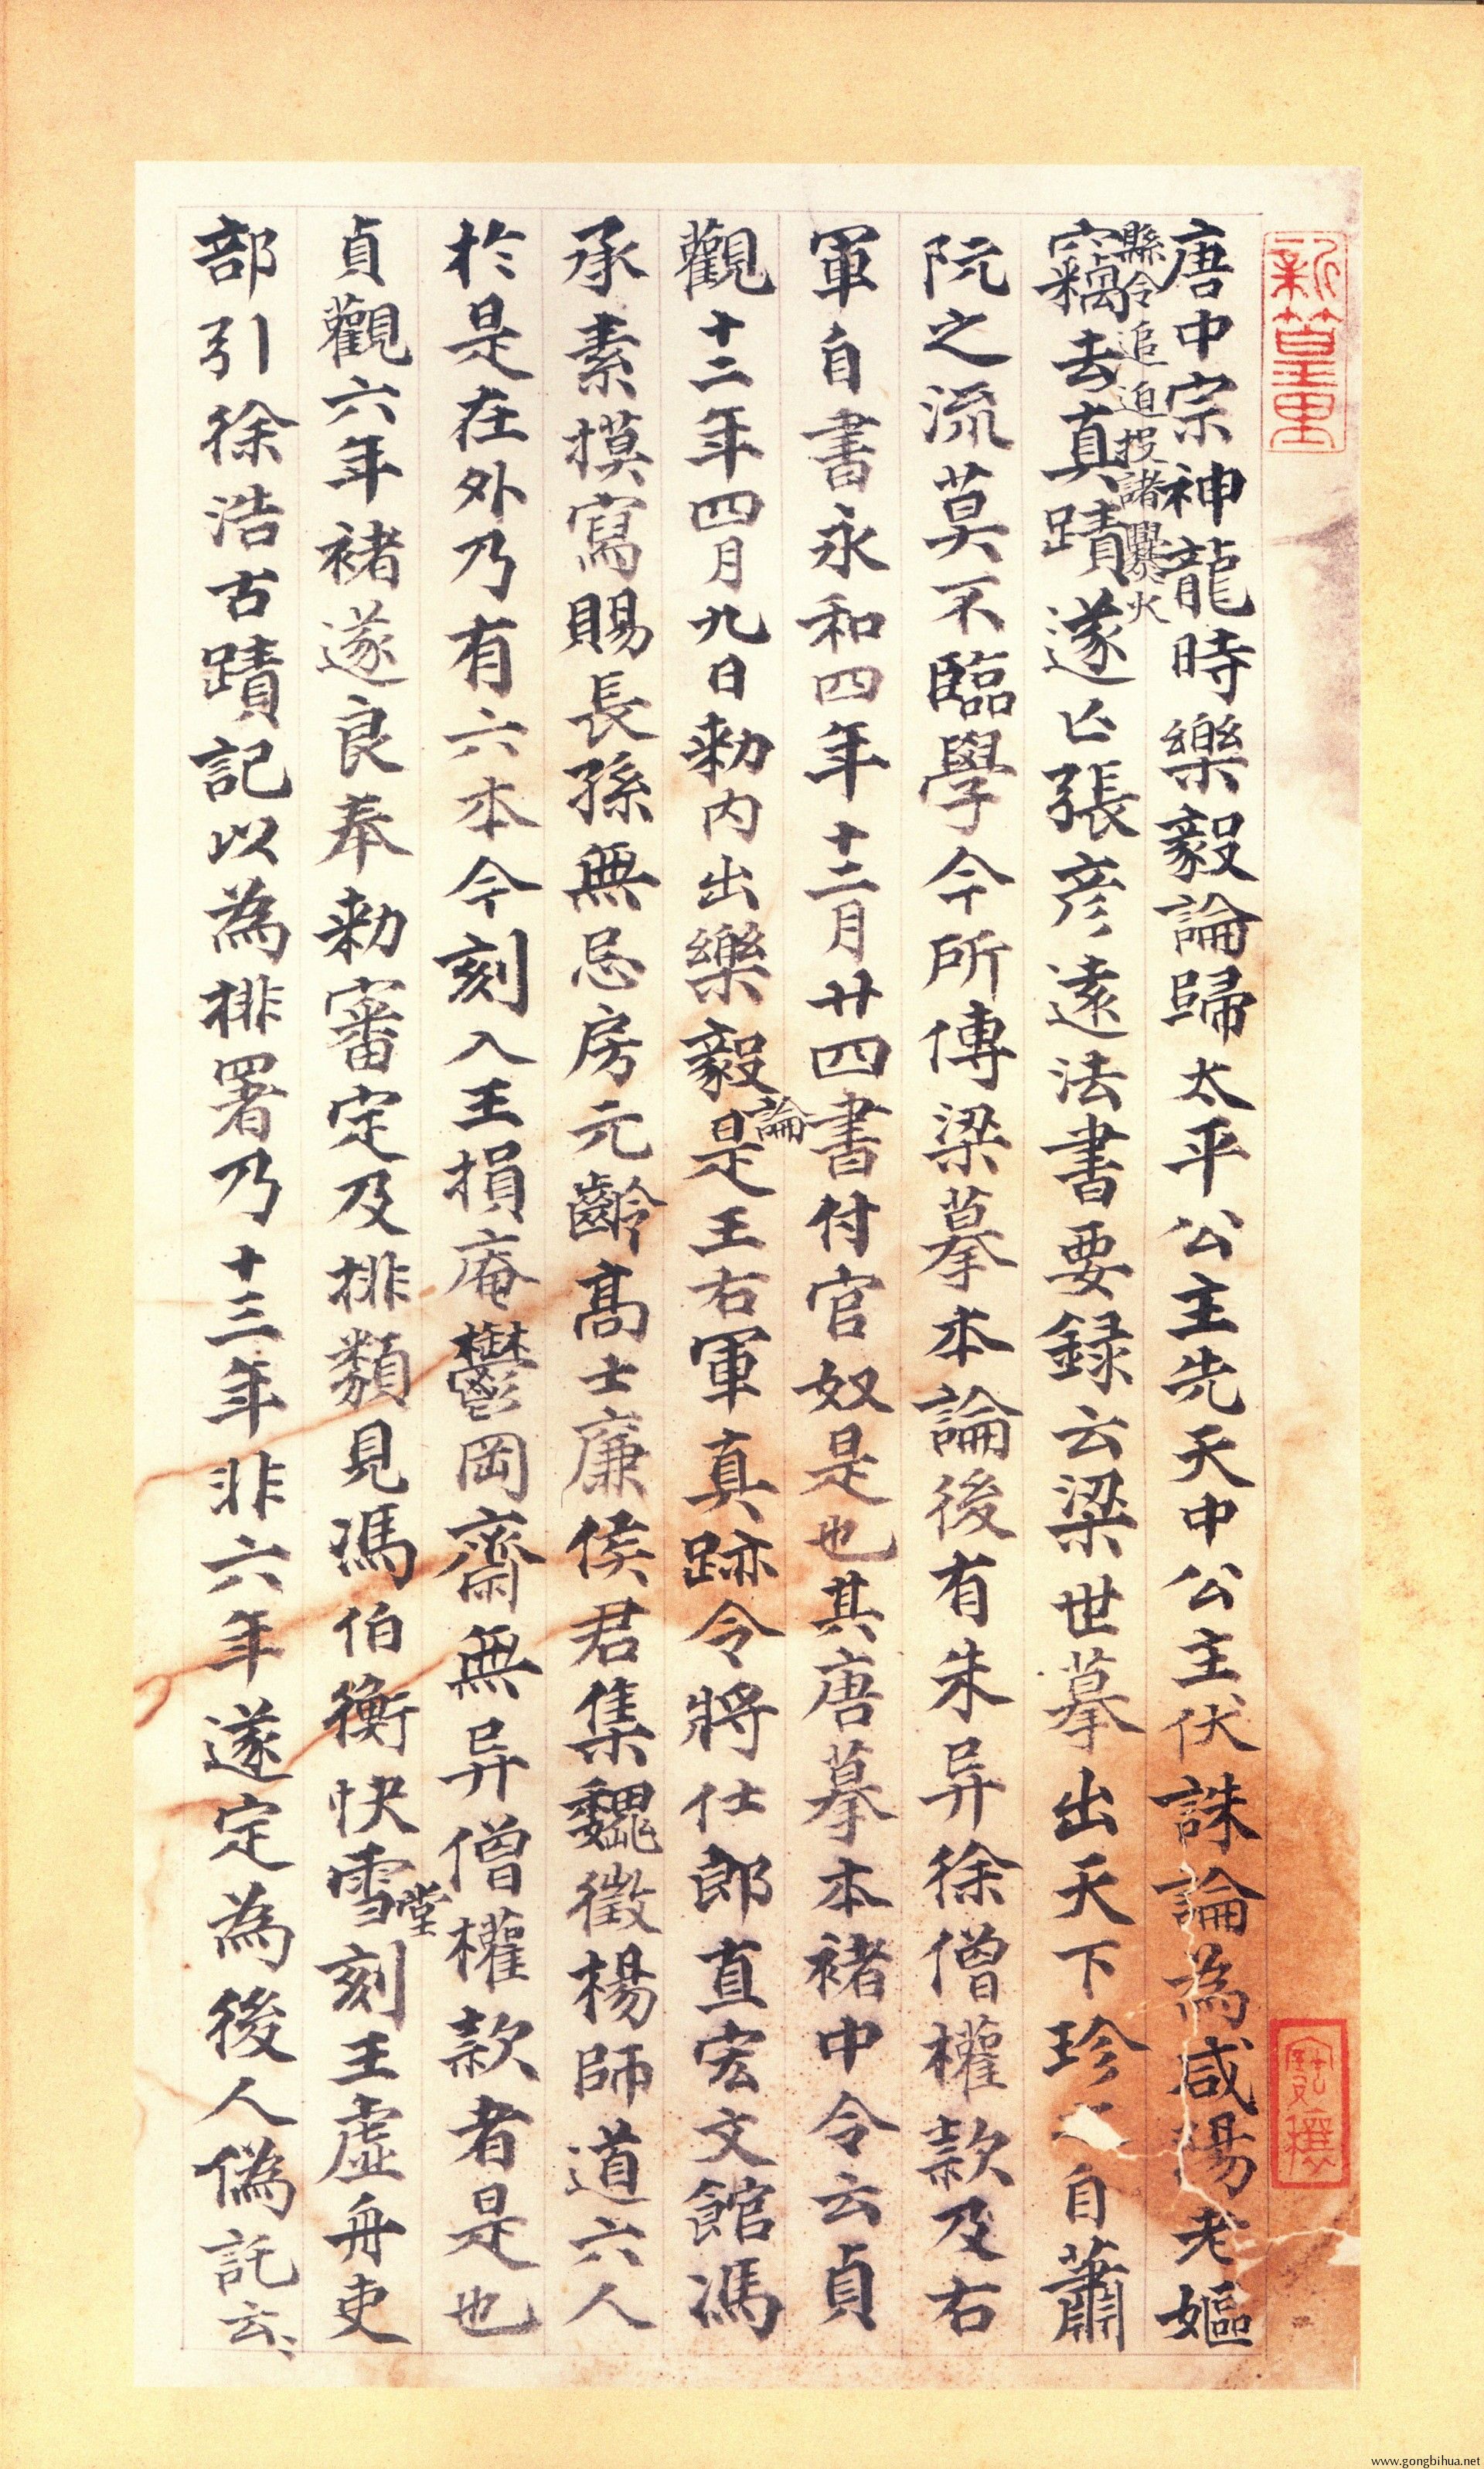 唐中宗神龍時樂毅論歸太平公主先天中公主伏誅論為咸陽老嫗
縣令追迫投諸爨火
竊去真蹟遂亡張彥遠法書要録云梁世摹出天下珍之自蕭
阮之流莫不臨學今所傳梁摹本論後有朱异徐僧權款及右
軍自書永和四年十二月廿四書付官奴是也其唐摹本褚中令云貞
觀十二年四月九日勅内出樂毅論是王右軍真跡令將仕郎直宏文館馮
承素摸寫賜長孫無忌房元齡高士廉侯君集魏徵楊師道六人
於是在外乃有六本今刻入王損庵鬱岡齋無异僧權款者是也
貞觀六年褚遂良奉勅審定及排類見馮伯衡快雪堂刻王虛舟吏
部引徐浩古蹟記以為排署乃十三年非六年遂定為後人偽託云、
www.gongbihua.net